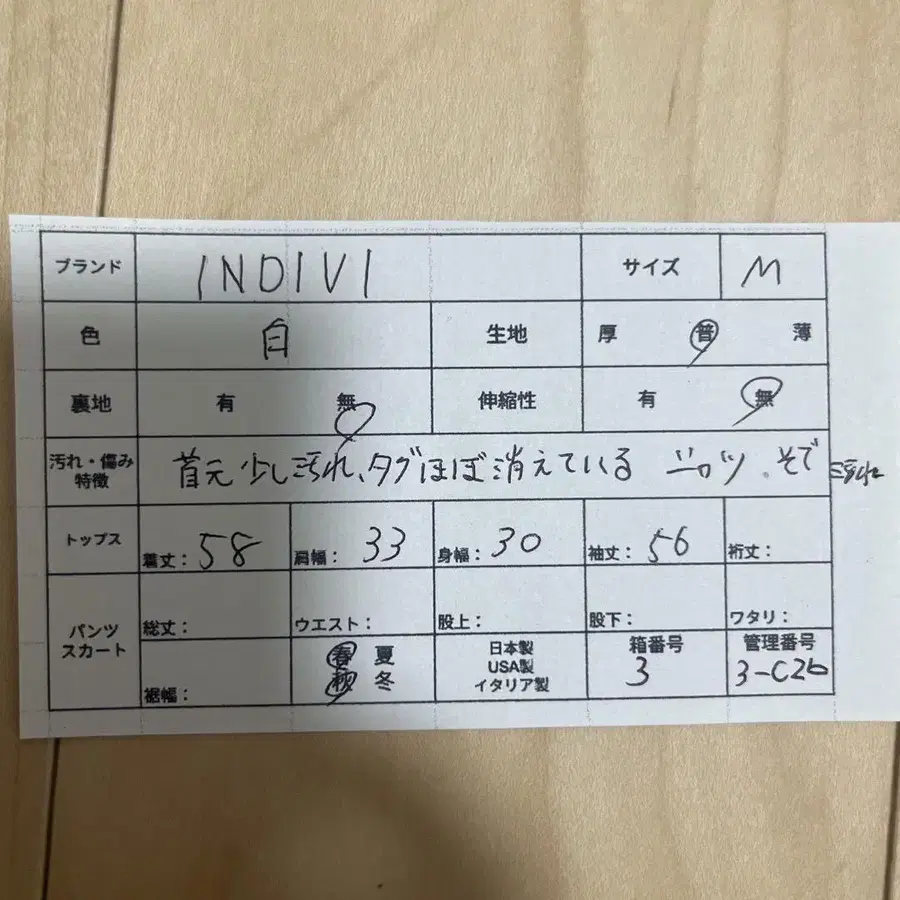 ブランド INDIVI サイズ M
色 白 生地 厚 普 薄
裏地 有 無 伸縮性 有 無
汚れ・傷み
特徴 首元少し汚れ、タグほぼ消えている シャツ、そで汚れ
トップス 着丈：58 肩幅：33 身幅：30 袖丈：56 裄丈：
パンツ
スカート 総丈： ウエスト： 股上： 股下： ワタリ：
裾幅： 春 夏
秋 冬
日本製
USA製
イタリア製
箱番号
3
管理番号
3-C26